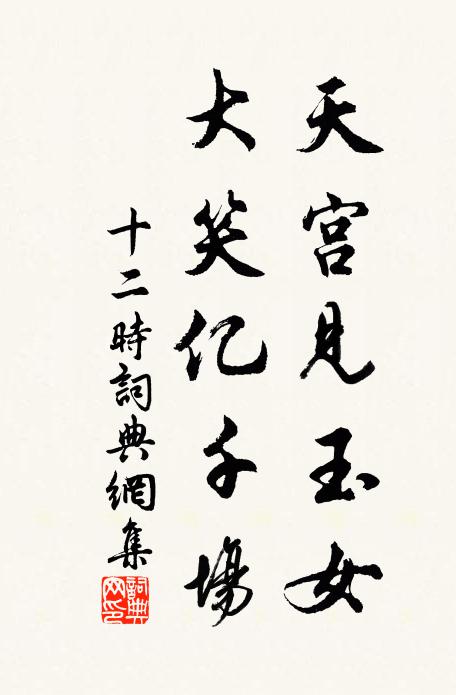 天宫見玉女
大笑亿千場
十二時詞典網集
詞典網印